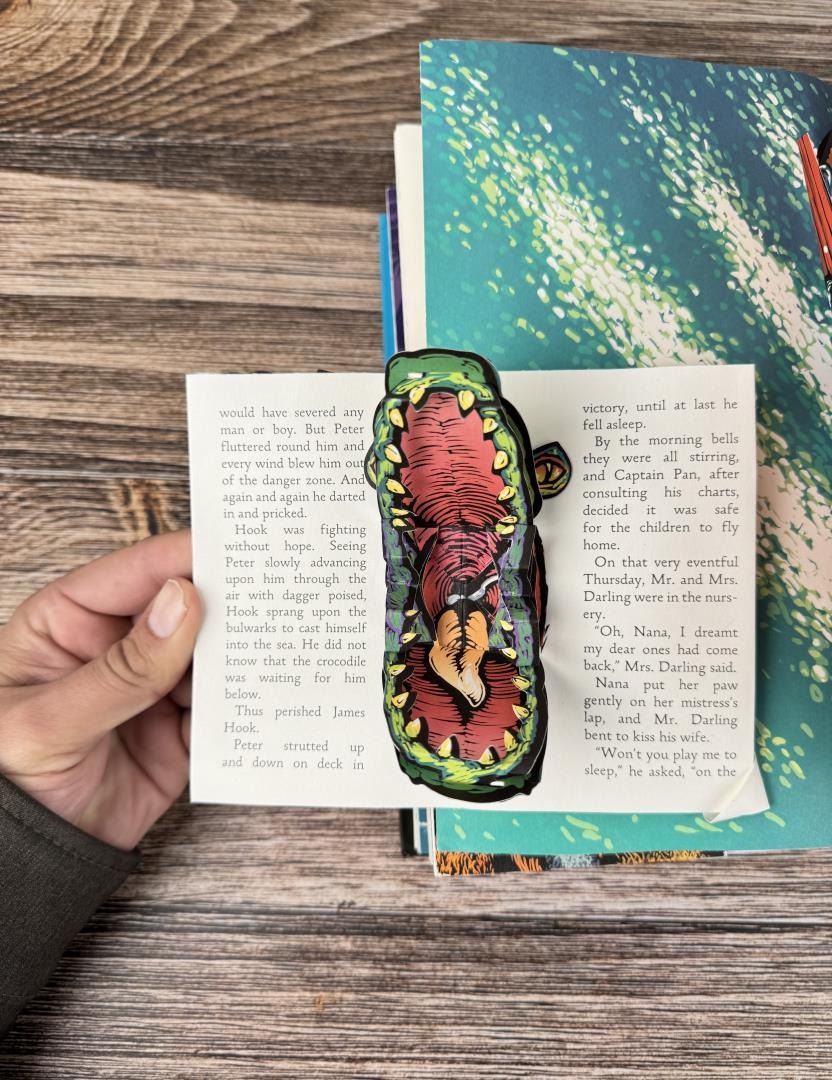 would have severed any
man or boy. But Peter
fluttered round him and
every wind blew him out
of the danger zone. And
again and again he darted
in and pricked.
Hook was fighting
without hope. Seeing
Peter slowly advancing
upon him through the
air with dagger poised,
Hook sprang upon the
bulwarks to cast himself
into the sea. He did not
know that the crocodile
was waiting for him
below.
Thus perished James
Hook.
Peter strutted up
and down on deck in
victory, until at last he
fell asleep.
By the morning bells
they were all stirring,
and Captain Pan, after
consulting his charts,
decided it was safe
for the children to fly
home.
On that very eventful
Thursday, Mr. and Mrs.
Darling were in the nurs-
ery.
“Oh, Nana, I dreamt
my dear ones had come
back,” Mrs. Darling said.
Nana put her paw
gently on her mistress's
lap, and Mr. Darling
bent to kiss his wife.
“Won't you play me to
sleep,” he asked, “on the